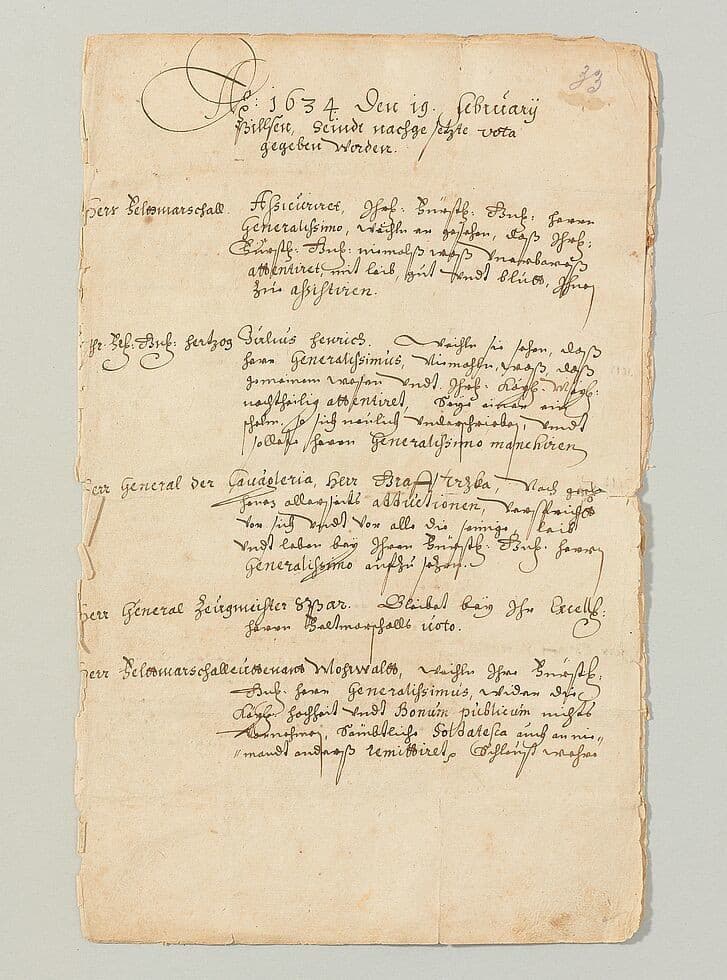 33
Aō: 1634 Den 19. February
Pillsen, Seindt nachgesetzte vota
gegeben worden.
Herr Veldtmarschall. Assicuriret, Ihr: Fürstl: Gn: Herrn
Generalissimo, weihln er gesehen, daß Ihr:
Fürstl: Gn: niemalß waß
attentiret, mit leib, gut undt blutt, Ihme
Zu assistiren.
Ihr: Gn: Hertzog Julius Henrich. Weihln sie sehen, daß
Herr Generalissimus, niemahln, waß, daß
gemeinem wesen undt Ihr: Kayl: May:
nachtheilig attentiret, Seye einer ein
schelm, so sich neulich underschrieben, undt
sollte Herrn Generalissimo manchiren
Herr General der Cavalleria, Herr Graff Trzka, Nach
allerseits verspricht
vor sich undt vor alle die seinige, leib
undt leben bey Ihrer Fürstl: Gn: Herrn
Generalissimo aufzusetzen.
Herr General Zeugmeister Spar. Bleibet bey Ihr Excell:
Herrn Veltmarschalls voto.
Herr Veldtmarschalleuttenant Mohrwaldt, weihln Ihre Fürstl:
Gn: Herr Generalissimus, wider die
Kayl: hochheit undt Bonum publicum nichts
vornehmen, Sämbtliche Soldatesca auch an nie-
mandt anderß remittiret, Schleust